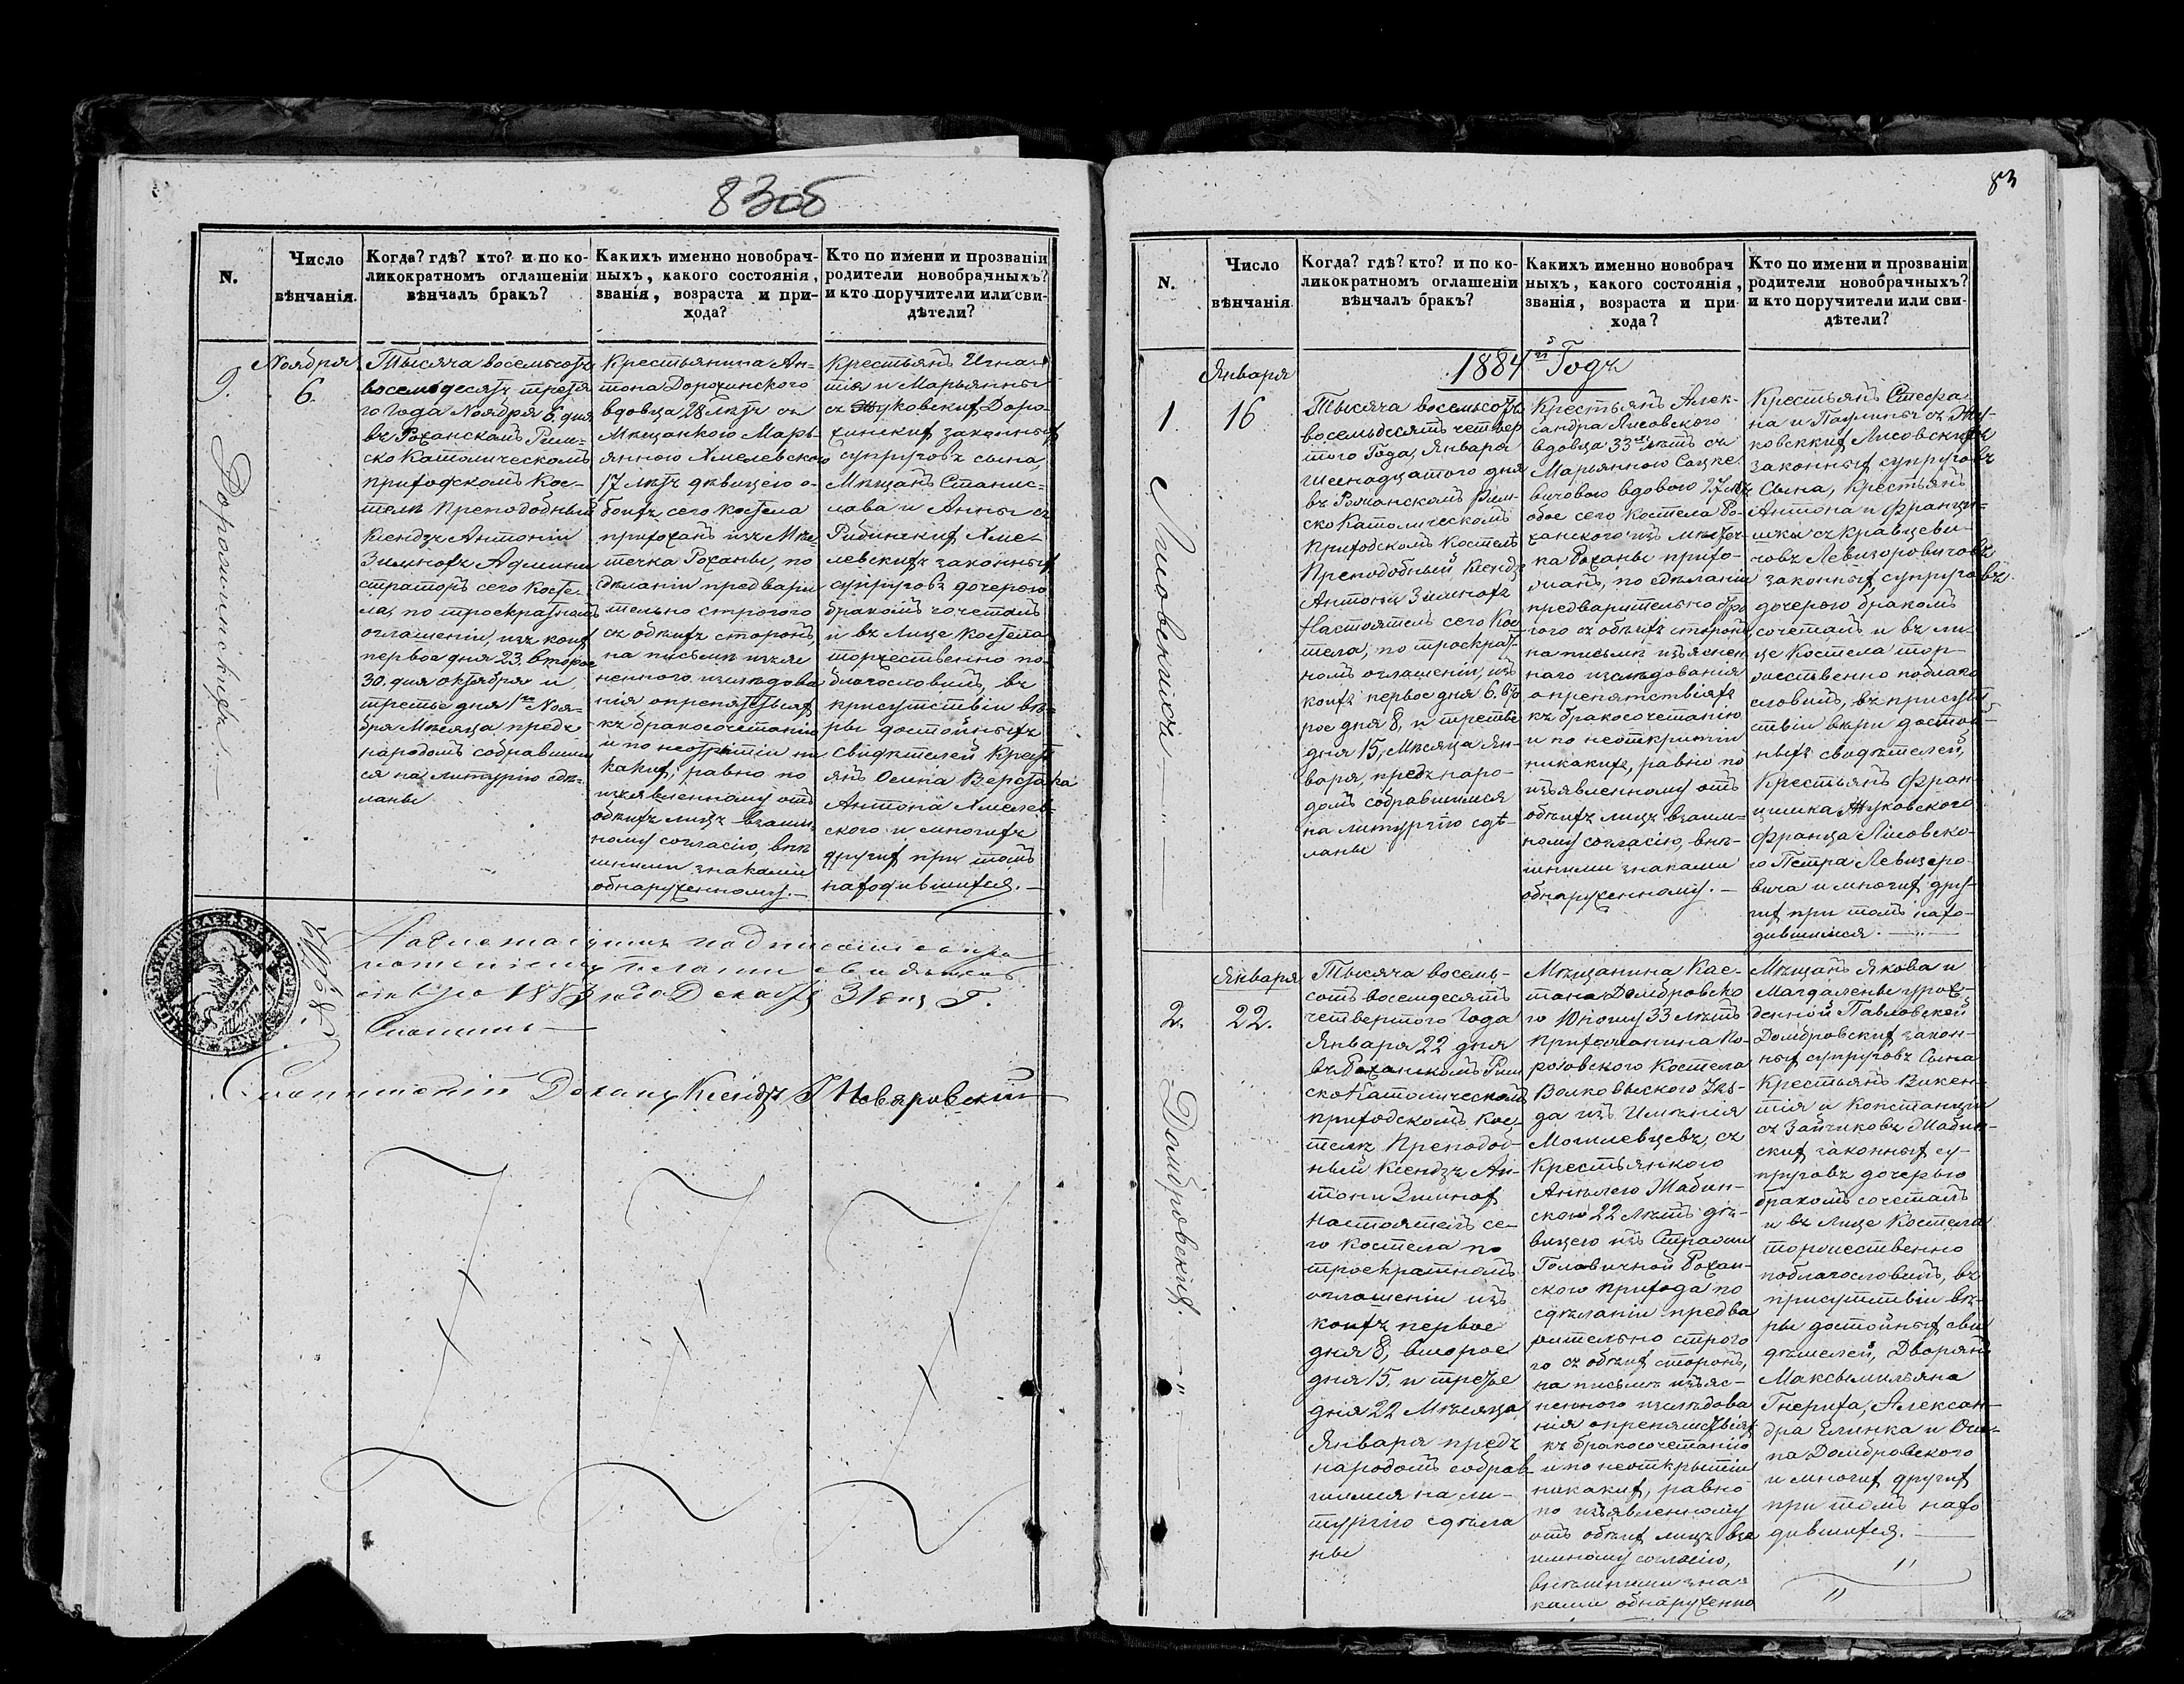 83об
N.
Число
вѣнчанія.
Когда? гдѣ? кто? и по ко-
ликократномъ оглашеніи
вѣнчалъ бракъ?
Какихъ именно новобрач-
ныхъ, какого состоянія,
званія, возраста и при-
хода?
Кто по имени и прозваніи
родители новобрачныхъ?
и кто поручители или сви-
дѣтели?
9.
Ноября
6.
Тысяча восемьсотъ
восемьдесятъ третья
го Года Ноября 6. дня
въ Роханскомъ Рим-
ско Католическомъ
приходскомъ Кос-
телѣ Преподобный
Ксендзъ Антоній
Зимнохъ Админи
страторъ сего Косте
ла, по троекратномъ
оглашеніи, изъ коих
первое дня 23. второе
30. дня октября и
третье дня 1го Ноя-
бря Мѣсяца предъ
народомъ собравшим
ся на литургію сдѣ-
ланы
Крестьянина Ан-
тона Дорохинского
вдовца 28 лѣтъ съ
Мѣщанкою Марь-
янною Хмелевскою
17 лѣтъ дѣвицею о-
боихъ сего костела
прихожанъ изъ Мѣс
течка Роханы, по
сдѣланіи предвари
тельно строгого
съ обѣихъ сторонъ,
на письмѣ изъяс
ненного изслѣдова
нія опрепятствіях
къ бракосочетанію
и по неоткрытіи ни
какихъ, равно по
изъявленному отъ
обѣихъ лицъ взаим
ному согласію, внѣ
шними знаками
обнаруженному. —
Крестьянъ Игна-
тія и Марьянны
съ Жуковскихъ Доро-
хинскихъ законныхъ
супруговъ сына,
Мѣщанъ Станис-
лава и Анны съ
Рибинскихъ Хме-
левскихъ законныхъ
супруговъ дочерью
бракомъ сочеталъ
и въ Лице Костела
торжественно по-
благословилъ, въ
присутствіи вѣ-
ры достойныхъ
Свидѣтелей Крест
янъ Осипа Верстака
Антона Хмелев-
ского и многихъ
другихъ при томъ
находившихся. —
31 дня Г.
Ксендзъ
83
N.
Число
вѣнчанія
Когда? гдѣ? кто? и по ко-
ликократномъ оглашеніи
вѣнчалъ бракъ?
Какихъ именно новобрач
ныхъ, какого состоянія,
званія, возраста и при-
хода?
Кто по имени и прозваніи
родители новобрачныхъ?
и кто поручители или сви-
дѣтели?
1884 Годъ
1.
Января
16
Лисовскихъ
Тысяча восемьсотъ
восемьдесятъ четвер
того Года, Января
шеснадцатого дня
въ Рожанскомъ Рим-
ско Католическомъ
Приходскомъ Костелѣ
Преподобный Ксендзъ
Антоній Зимнохъ
Настоятель сего Кос
тела, по троекрат-
номъ оглашеніи, изъ
коихъ первое дня 6. вто
рое дня 8, и третье
дня 15, Мѣсяца Ян-
варя, предъ наро-
домъ собравшимся
на литургію сдѣ-
ланы
Крестьянъ Алек-
сандра Лисовского
вдовца 33 лѣтъ съ
Марьянною Сацке
вичовою вдовою 27 лѣтъ
обое сего костела Ро-
ханского изъ мѣстеч-
ка Роханы прихо-
жанъ, по сдѣланіи
предварительно стро
гого съ обѣихъ сторонъ
на письмѣ изъяснен
наго изслѣдованія
опрепятствіяхъ
къ бракосочетанію
и по неоткритіи
никакихъ, равно по
изъявленному отъ
обѣихъ лицъ взаим-
ному согласію, внѣ-
шними знаками
обнаруженному. —
Крестьянъ Стефа-
на и Паулины съ Жу-
ковскихъ Лисовскихъ
законныхъ супруговъ
Сына, Крестьянъ
Антона и Францы-
шки съ Кравцеви-
човъ Левизоровичовъ
законныхъ супруговъ
дочерою бракомъ
сочеталъ и въ ли-
це Костела тор-
жественно поблаго
словилъ, въ присут
ствіи вѣри достой
ныхъ свидѣтелей,
Крестьянъ Фран-
цишка Жуковского
Франца Лисовско-
го Петра Левизеро
вича и многихъ дру-
гихъ при томъ нахо-
дившимся. —
2.
Января
22.
Домбровскихъ
Тысяча восемь-
сотъ восемдесятъ
четвертого Года
Января 22 дня
въ Роханскомъ Рим
ско Католическомъ
приходскомъ Кос-
телѣ Преподоб-
ный Ксендзъ Ан-
тоній Зимнохъ
настоятель се-
го костела по
троекратномъ
оглашеніи изъ
коихъ первое
дня 8, второе
дня 15. и третье
дня 22 Мѣсяца
Января предъ
народомъ собрав
шимся на ли-
тургію сдѣла
ны
Мѣщанина Кае-
тана Домбровско
го Юношу 33 лѣтъ
прихожанина По-
розовского Костела
Волковыского Уѣз-
да изъ Имѣнія
Могилевцевъ, съ
Крестьянкою
Анѣлею Жабин-
скою 22 лѣтъ дѣ-
вицею изъ Стражи
Головичной Рохан-
ского прихода по
сдѣланіи предва
рительно строго
го съ обѣихъ сторонъ,
на письмѣ изъяс-
ненного изслѣдова
нія опрепятствіях
къ бракосочетанію
и по неоткрытіи
никакихъ, равно
по изъявленному
отъ обѣихъ лицъ вза
имному согласію,
внѣшними зна
ками обнаруженно
Мѣщанъ Якова и
Магдалены урож-
денной Павловской
Домбровскихъ закон-
ныхъ супруговъ Сына
Крестьянъ Викен-
тія и Констанціи
съ Зайчиковъ Жабин-
скихъ законныхъ су-
пруговъ дочерью
бракомъ сочеталъ
и въ лице Костела
торжественно
поблагословилъ, въ
присутствіи вѣ-
ры достойныхъ сви
дѣтелей, Дворянъ
Максымиліана
Гнериха, Алексан-
дра Елинка и Оси-
па Домбровского
и многихъ другихъ
при томъ нахо
дившихся. —